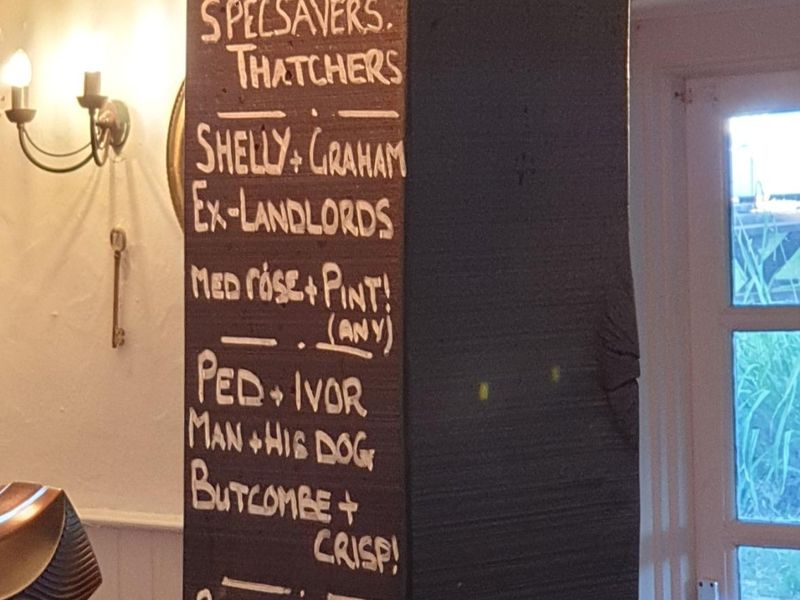 SPECSAVERS.
THATCHERS
SHELLY + GRAHAM
EX-LANDLORDS
MED róSE + PINT!
(ANY)
PED + IVOR
MAN + HIS DOG
BUTCOMBE +
CRISP!